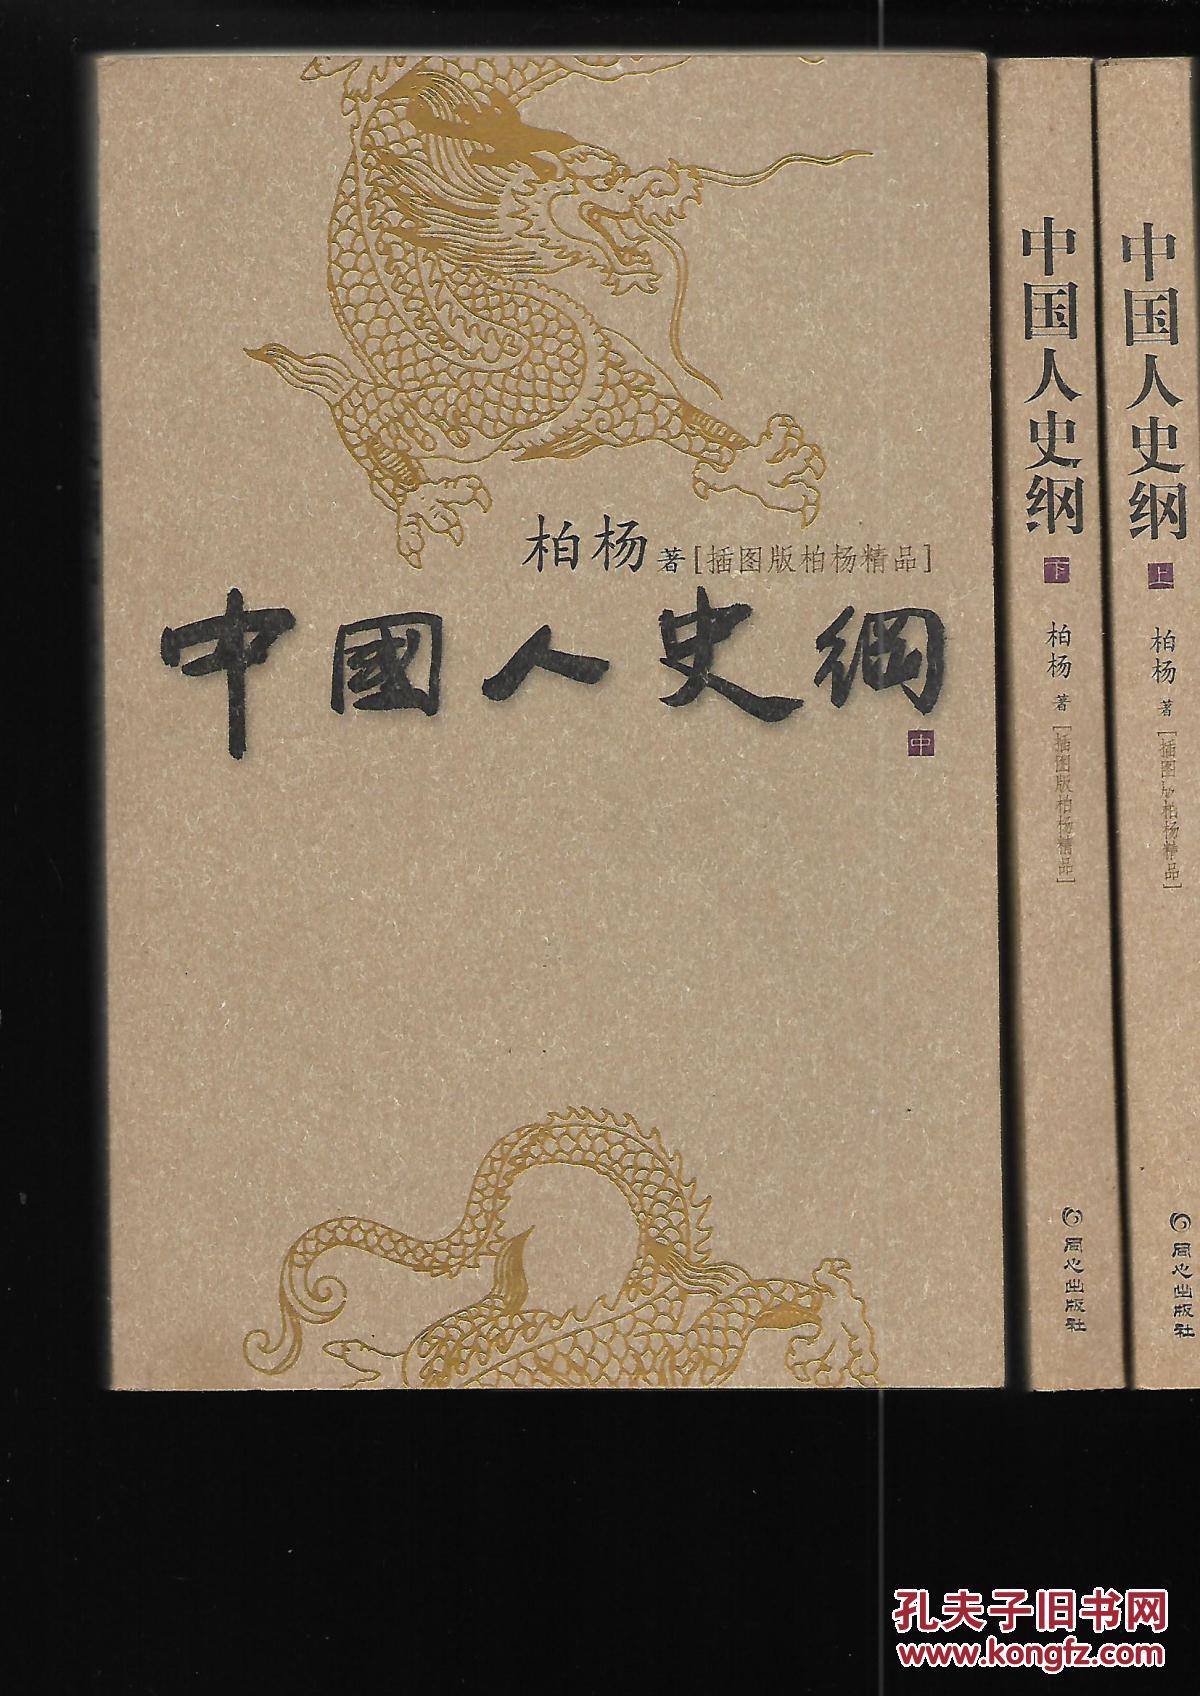 柏杨 著[插图版柏杨精品]
中國人史綱
中
中国人史纲
下
柏杨 著[插图版柏杨精品]
同心出版社
中国人史纲
上
柏杨 著[插图版柏杨精品]
同心出版社
孔夫子旧书网
www.kongfz.com